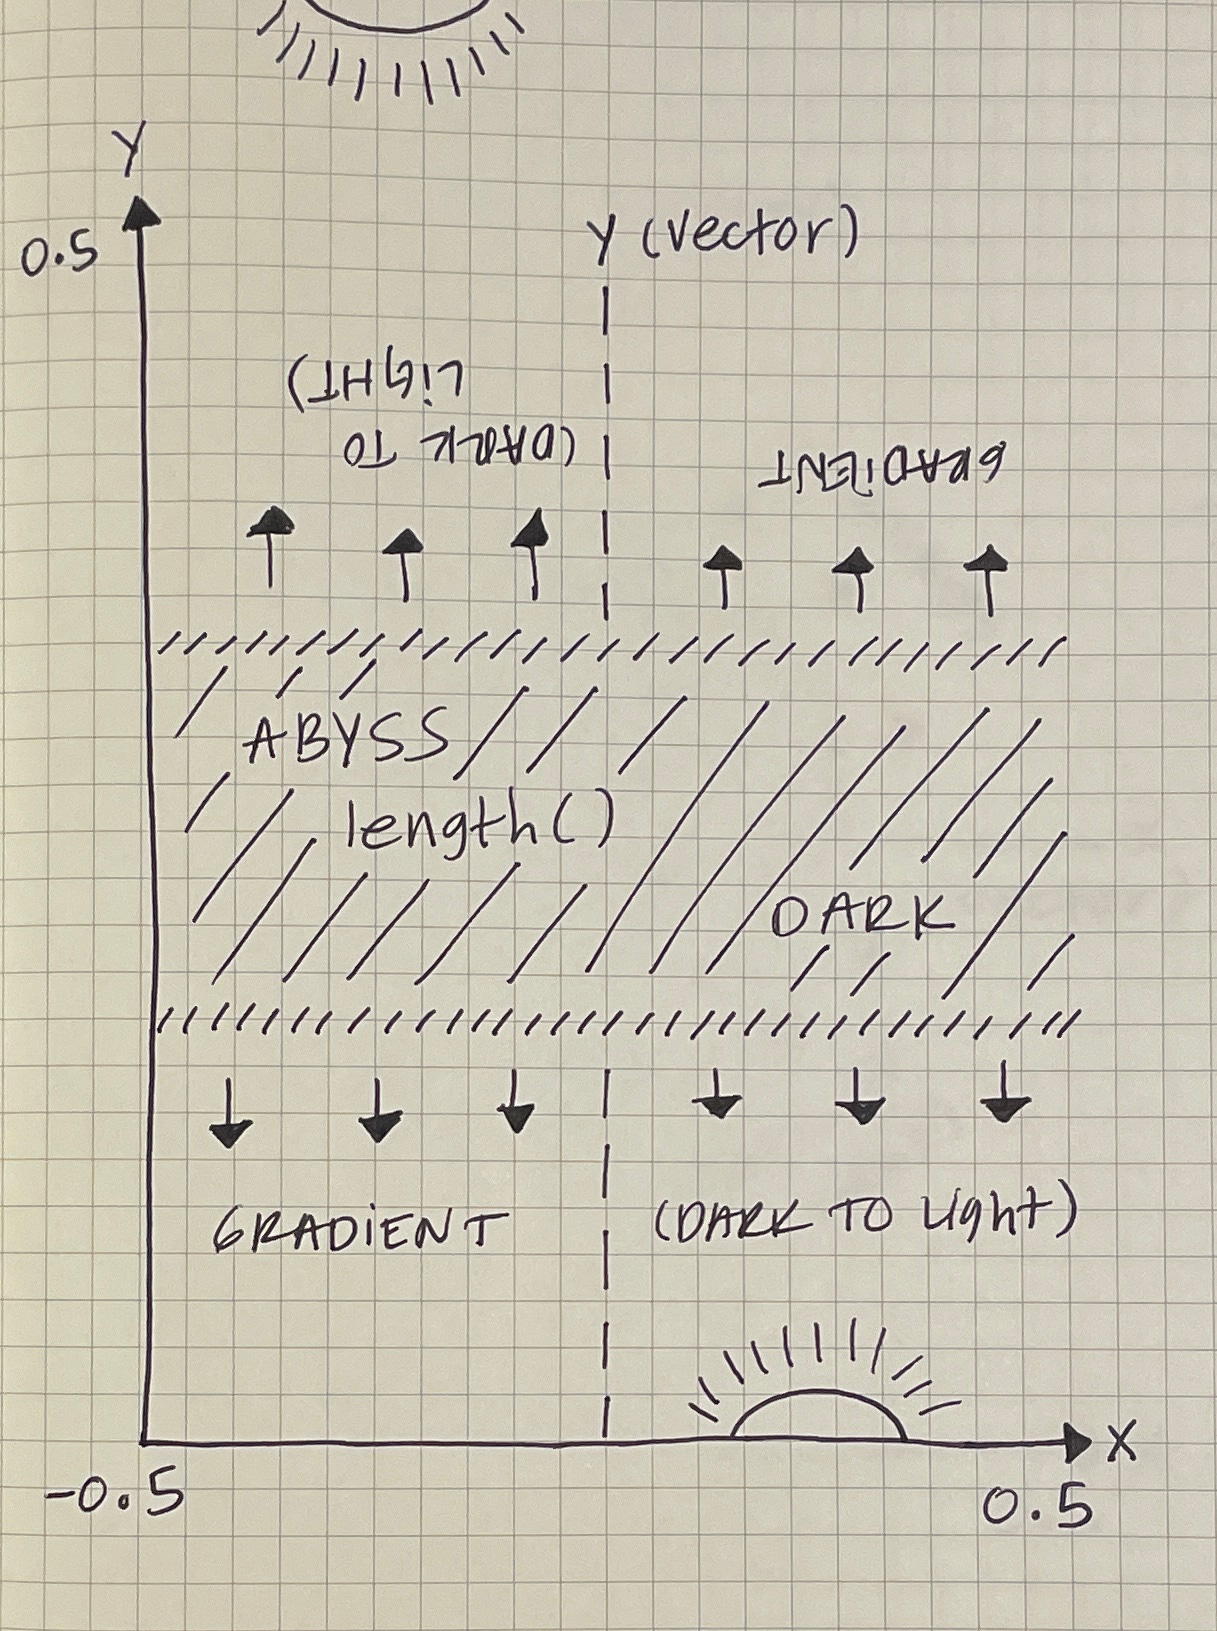 Y
0.5
Y (vector)
(DARK TO
LIGHT)
GRADIENT
ABYSS
length()
DARK
GRADIENT
(DARK TO Light)
X
-0.5
0.5